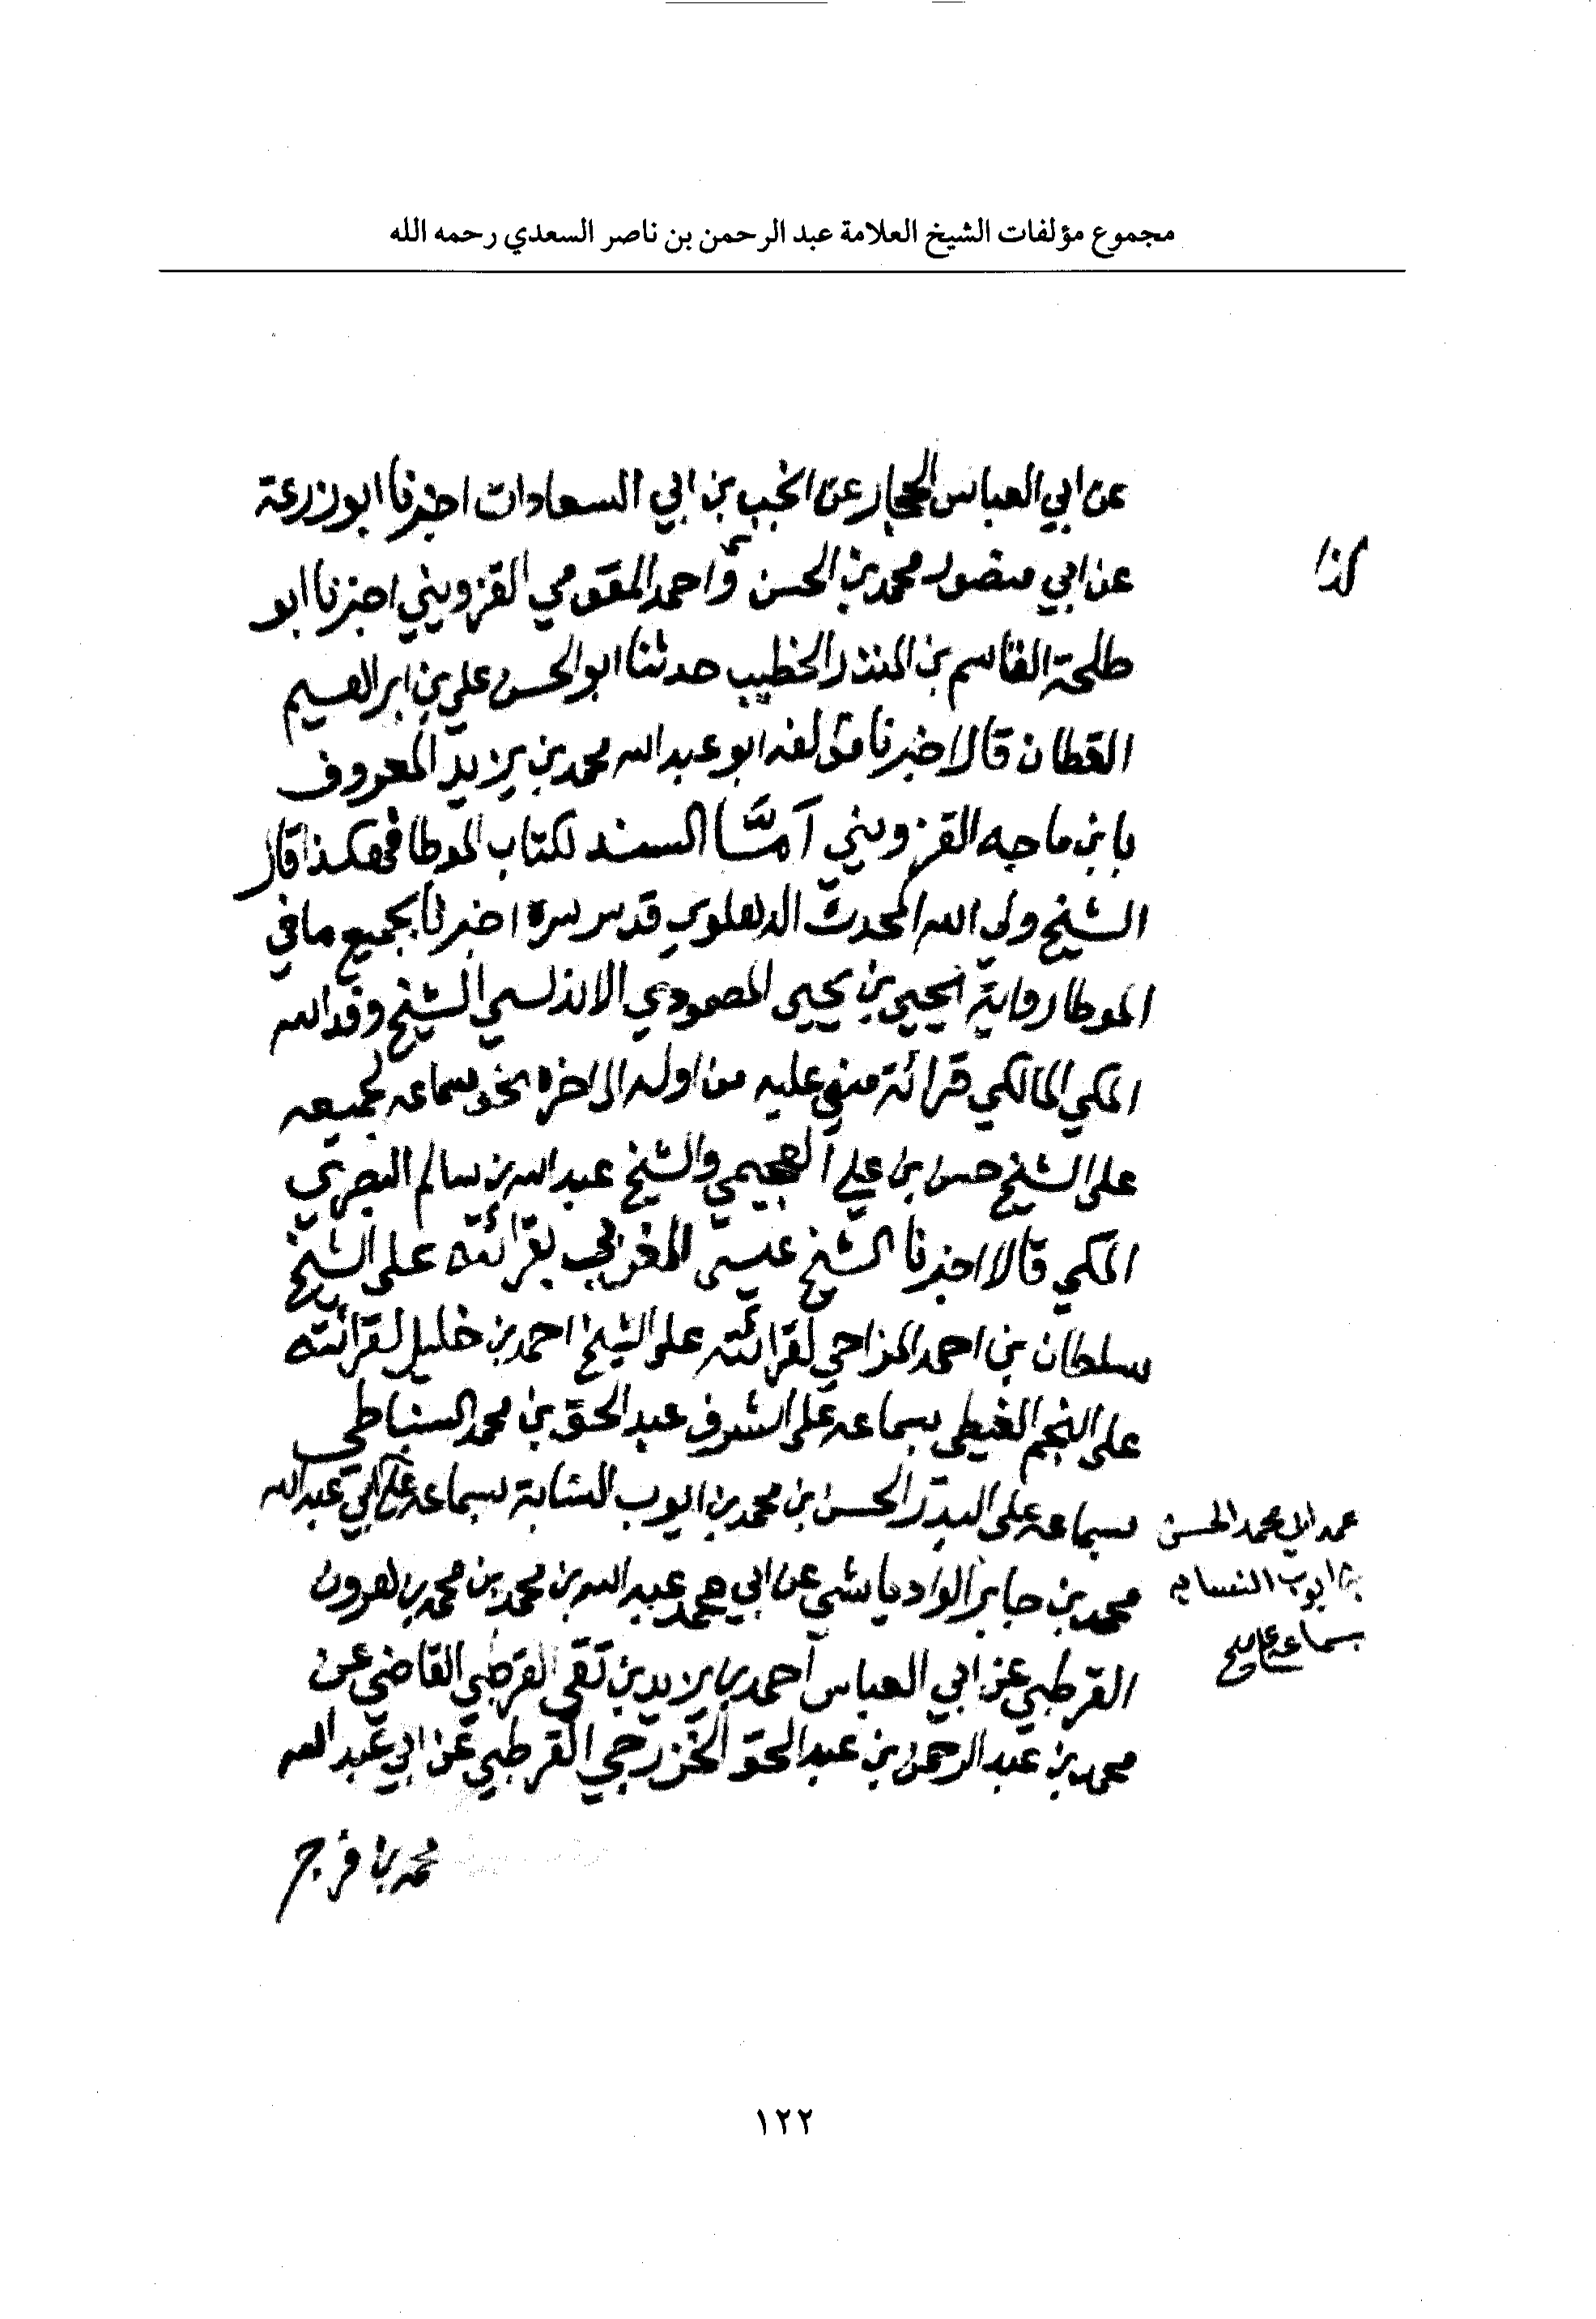 مجموع مؤلفات الشيخ العلامة عبد الرحمن بن ناصر السعدي رحمه الله
عن ابي العباس الحجار عن انجب بن ابي السعادات اخبرنا ابوزرعة
عن ابي منصور محمد بن الحسن واحمد المقومي القزويني اخبرنا ابو
كذا
طلحة القاسم بن المنذر الخطيب حدثنا ابو الحسن علي بن ابراهيم
القطان قالا اخبرنا مؤلفه ابو عبد الله محمد بن يزيد المعروف
بابن ماجه القزويني أمَّا السند لكتاب الموطا فهكذا قال
الشيخ ولي الله المحدث الدهلوي قدس سره اخبرنا بجميع ما في
الموطا رواية يحيى بن يحيى المصمودي الاندلسي الشيخ وفد الله
المكي المالكي قرائة مني عليه من اوله الى اخره بحق سماعه لجميعه
على الشيخ حسن بن علي العجيمي والشيخ عبد الله بن سالم البصري
المكي قالا اخبرنا الشيخ عيسى المغربي بقرائته على الشيخ
سلطان بن احمد المزاحي بقرائته على الشيخ احمد بن خليل بقرائته
على النجم الغيطي بسماعه على الشرف عبد الحق بن محمد السنباطي
بسماعه على البدر الحسن بن محمد بن ايوب النسابة بسماعه على ابي عبد الله
محمد بن جابر الوادياشي عن ابي محمد عبد الله بن محمد بن محمد بن هرون
القرطبي عن ابي العباس احمد بن يزيد بن تقي القرطبي القاضي عن
محمد بن عبد الرحمن بن عبد الحق الخزرجي القرطبي عن ابي عبد الله
محمد بن فرج
محمد الحسن
بن ايوب النسابه
بسماعه على
١٢٢